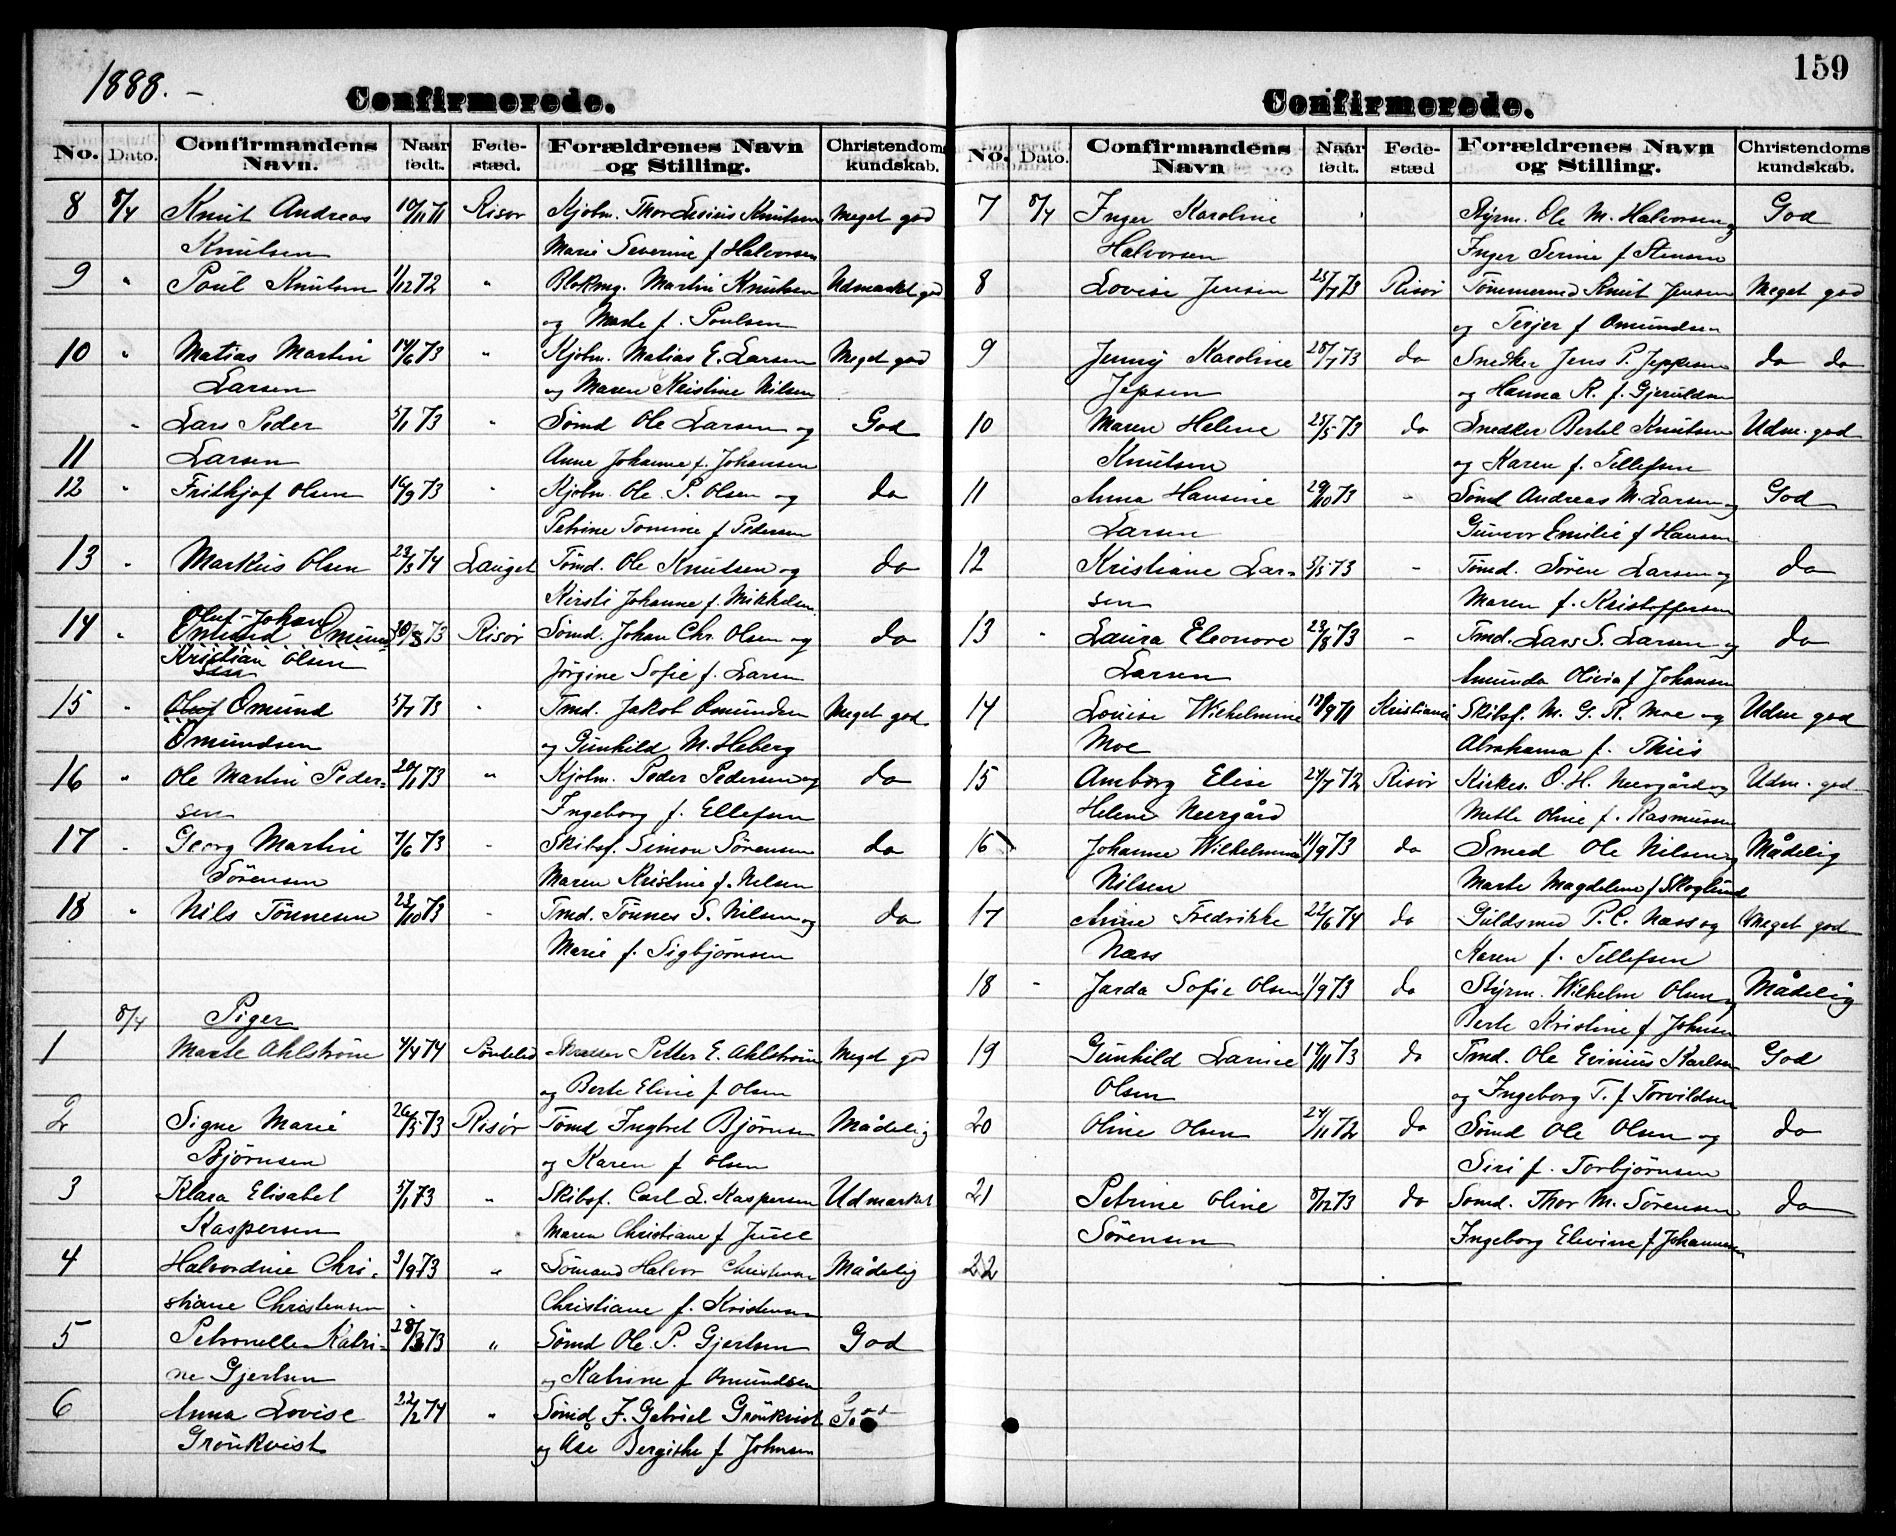 1888. –
Confirmerede.
No. Dato. Confirmandens Navn. Naar født. Føde-stæd. Forældrenes Navn og Stilling. Christendoms kundskab.
8 8/4 Knut Andreas 10/11 71 Risør Kjøbm. Thor Knutsen Meget god
Knutsen Marie Severine f Halvorsen
9 " Poul Knutsen 1/12 72 " Blokmg. Martin Knutsen Udmærket god
og Marte f. Poulsen
10 " Matias Martin 14/6 73 " Kjøbm. Matias E. Larsen Meget god
Larsen og Maren Kristine Nilsen
" Lars Peder 5/1 73 " Sømd Ole Larsen og God
11 Larsen Anne Johanne f. Johansen
12 " Frithjof Olsen 16/9 73 " Kjøbm. Ole P. Olsen og do
Petrine Tomine f Pedersen
13 " Markus Olsen 23/3 74 Lauget Tømd. Ole Knutsen og do
Kirsti Johanne f. Mikkelsen
Oluf Johan
14 " Omund Omund 30/8 73 Risør Sømd. Johan Chr. Olsen og do
Kristian Olsen
sen Jørgine Sofie f. Larsen
15 " Oluf Omund 5/7 73 " Tmd. Jakob Omundsen Meget god
Omundsen og Gunhild M. Heberg
16 " Ole Martin Peder- 20/1 73 " Kjøbm. Peder Pedersen og do
sen Ingeborg f. Ellefsen
17 " Georg Martin 7/6 73 " Skibsf. Simon Sørensen do
Sørensen Maren Kristine f. Nelsen
18 " Nils Tønnesen 23/10 73 " Tmd. Tønnes S. Nilsen og do
Marie f. Sigbjørnsen
8/4 Piger
1 Marte Ahlstrøm 4/4 74 Søndeled Petter E. Ahlstrøm Meget god
og Berte Eline f Olsen
2 Signe Marie 26/5 73 Risør Tømd Ingbret Bjørnsen Mådelig
Bjørnsen og Karen f Olsen
3 Klara Elisabet 5/1 73 " Skibsf. Carl L. Kaspersen Udmærket
Kaspersen Maren Christiane f Juell
4 Halvordine Chri- 3/9 73 " Sømand Halvor Christensen Mådelig
stiane Christensen Christiane f. Kristensen
5 Petronelle Katri- 28/3 73 " Sømd Ole P. Gjertsen God
ne Gjertsen og Katrine f Omundsen
6 Anna Lovise 22/2 74 " Sømd F. Gabriel Grönkvist God
Grönkvist og Åse Bergithe f Johnsen
159
Confirmerede.
No. Dato. Confirmandens Navn Naar født. Føde-stæd Forældrenes Navn og Stilling. Christendoms kundskab.
7 8/4 Inger Karoline Styrm. Ole M. Halvorsen og God
Halvorsen Inger Serine f Stensen
8 Lovise Jensen 25/7 73 Risør Tømmermd Knut Jensen Meget god
og Terjer f Omundsen
9 Jenny Karoline 28/7 73 do Snedker Jens P. Jeppesen do do
Jepsen og Hanna R. f. Gjeruldsen
10 Maren Helene 25/5 73 do Snedker Bertel Knutsen Udm. god
Knutsen og Karen f. Tellefsen
11 Anna Hansine 29/10 73 " Sømd Andreas M. Larsen og God
Larsen Gunvor Emilie f Hansen
12 Kristiane Lar- 5/5 73 " Tømd. Søren Larsen og do
sen Maren f. Kristoffersen
13 " Laura Eleonore 23/8 73 " Tmd. Lars S. Larsen og do
Larsen Amunda Olivia f Johansen
14 Louise Wilhelmine 12/9 71 Kristiania Skibsf. M. G. R. Moe og Udm god
Moe Abrahama f. Thiis
15 Amborg Elise 24/7 72 Risør Kirkes. O. H. Neergård og Udm. god
Helene Neergård Mette Oline f. Rasmussen
16 Johanne Wilhelmine 11/9 73 do Smed Ole Nilsen og Mådelig
Nilsen Marte Magdelene f Skoglund
17 Anne Fredrikke 22/6 74 do Guldsmed P. C. Næss og Meget god
Næss Karen f. Tellefsen
18 " Jarda Sofie Olsen 1/9 73 do Styrm. Wilhelm Olsen og Mådelig
Berte Kristine f Johnsen
19 Gunhild Larine 17/11 73 do Tmd. Ole Evinius Karlsen God
Olsen og Ingeborg T. f Torvildsen
20 Oline Olsen 24/11 72 do Sømd Ole Olsen og do
Siri f. Torbjørnsen
21 Petrine Oline 8/12 73 do Sømd. Thor M. Sørensen do
Sørensen Ingeborg Elevine f Johannesen
22